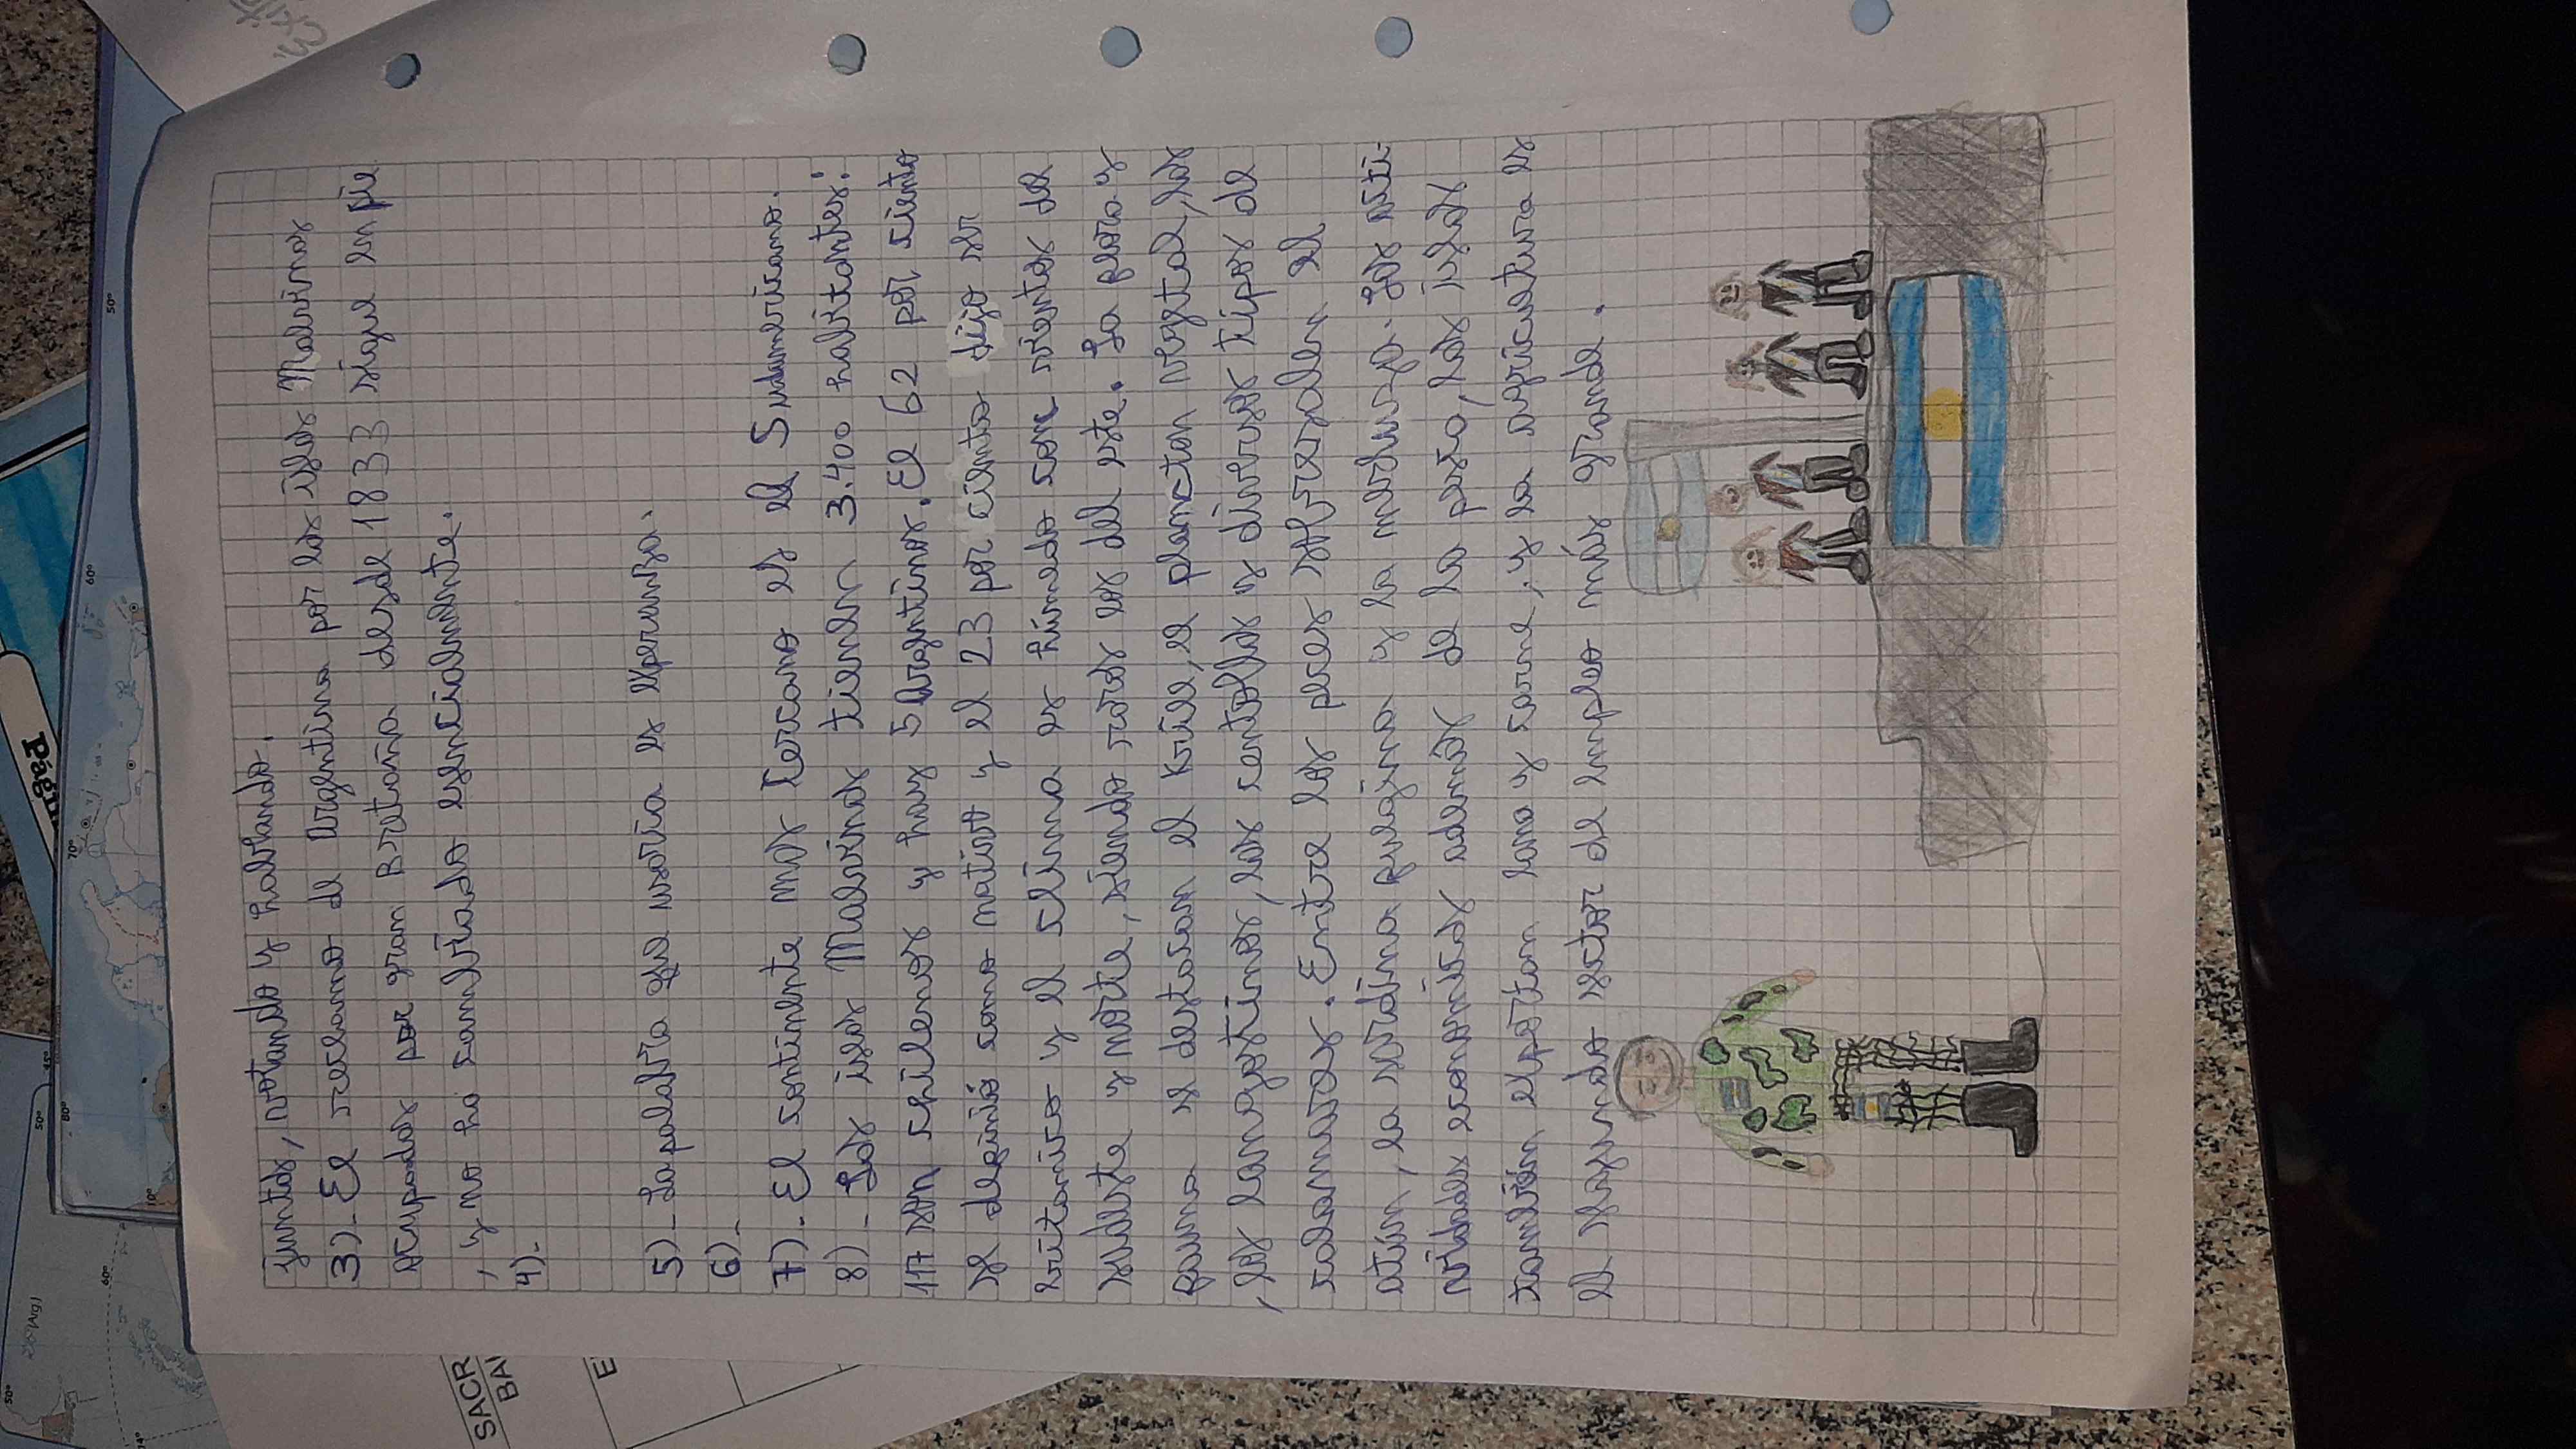 juntos, votando y hablando.
3)- El reclamo de Argentina por las islas Malvinas
ocupadas por gran Bretaña desde 1833 sigue en pie
, y no ha cambiado esencialmente.
4)-
5)- La palabra que usaría es esperanza.
6)-
7)- El continente mas cercano es el Sudamericano.
8)- Las islas Malvinas tienen 3.400 habitantes:
117 son chilenos y hay 5 Argentinos. El 62 por siento
se definió como nativo y el 23 por ciento dijo ser
británico y el clima es húmedo con vientos del
sudeste y norte, siendo raros los del este. La flora y
fauna se destacan el krill, el plancton vegetal, los
, los langostinos, las centollas y diversos tipos de
calamares. Entre los peces sobresalen el
atún, la sardina fueguina y la merluza. Las acti-
vidades económicas además de la pesca, las islas
también exportan lana y carne; y la agricultura es
el segundo sector de empleo más grande.
Pág
SACR
BA
E
50°
60°
70°
80°
50°
60°
50°
45°
10°
(Arg)